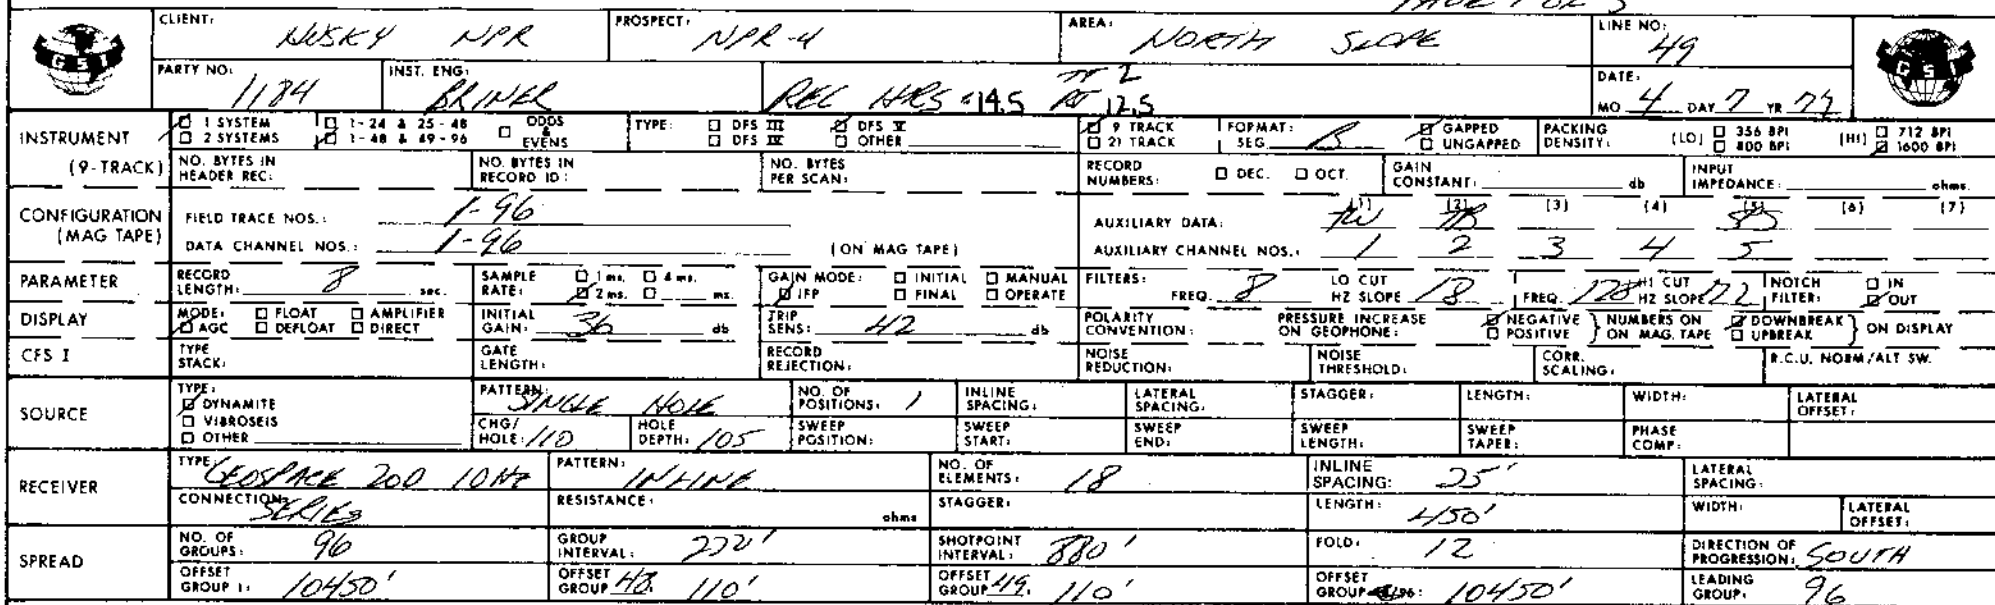 PAGE 1 OF 5
GSI CLIENT: HUSKY NPR PROSPECT: NPR-4 AREA: NORTH SLOPE LINE NO: 49 GSI
PARTY NO: 1184 INST. ENG: BRINER REC HRS = 14.5 12.5 DATE: MO 4 DAY 7 YR 79
INSTRUMENT 1 SYSTEM 1-24 & 25-48 ODDS & EVENS TYPE: DFS III DFS V 9 TRACK FORMAT: GAPPED PACKING DENSITY: (LO) 356 BPI (HI) 712 BPI
2 SYSTEMS 1-48 & 49-96 DFS IV OTHER 21 TRACK SEG B UNGAPPED 800 BPI 1600 BPI
(9-TRACK) NO. BYTES IN HEADER REC: NO. BYTES IN RECORD ID: NO. BYTES PER SCAN: RECORD NUMBERS: DEC. OCT. GAIN CONSTANT: db INPUT IMPEDANCE: ohms.
CONFIGURATION FIELD TRACE NOS.: 1-96 AUXILIARY DATA: (1) (2) TB (3) (4) (5) (6) (7)
(MAG TAPE) DATA CHANNEL NOS.: 1-96 (ON MAG TAPE) AUXILIARY CHANNEL NOS.: 1 2 3 4 5
PARAMETER RECORD LENGTH: 8 sec. SAMPLE RATE: 1 ms. 4 ms. 2 ms. ms. GAIN MODE: INITIAL MANUAL IFP FINAL OPERATE FILTERS: FREQ. 8 LO CUT HZ SLOPE 18 FREQ. 128 HI CUT HZ SLOPE 72 NOTCH FILTER: IN OUT
DISPLAY MODE: FLOAT AMPLIFIER AGC DEFLOAT DIRECT INITIAL GAIN: 36 db TRIP SENS: 42 db POLARITY CONVENTION: PRESSURE INCREASE ON GEOPHONE: NEGATIVE POSITIVE NUMBERS ON MAG. TAPE DOWNBREAK UPBREAK ON DISPLAY
CFS I TYPE STACK: GATE LENGTH: RECORD REJECTION: NOISE REDUCTION: NOISE THRESHOLD: CORR. SCALING: R.C.U. NORM/ALT SW.
SOURCE TYPE: DYNAMITE VIBROSEIS OTHER PATTERN: SINGLE HOLE NO. OF POSITIONS: 1 INLINE SPACING: LATERAL SPACING: STAGGER: LENGTH: WIDTH: LATERAL OFFSET:
CHG/HOLE: 110 HOLE DEPTH: 105 SWEEP POSITION: SWEEP START: SWEEP END: SWEEP LENGTH: SWEEP TAPER: PHASE COMP:
RECEIVER TYPE: GEOSPACE 20D 10Hz PATTERN: INLINE NO. OF ELEMENTS: 18 INLINE SPACING: 25' LATERAL SPACING:
CONNECTION: SERIES RESISTANCE: ohms STAGGER: LENGTH: 450' WIDTH: LATERAL OFFSET:
SPREAD NO. OF GROUPS: 96 GROUP INTERVAL: 220' SHOTPOINT INTERVAL: 880' FOLD: 12 DIRECTION OF PROGRESSION: SOUTH
OFFSET GROUP 1: 10450' OFFSET GROUP 48: 110' OFFSET GROUP 49: 110' OFFSET GROUP 96: 10450' LEADING GROUP: 96